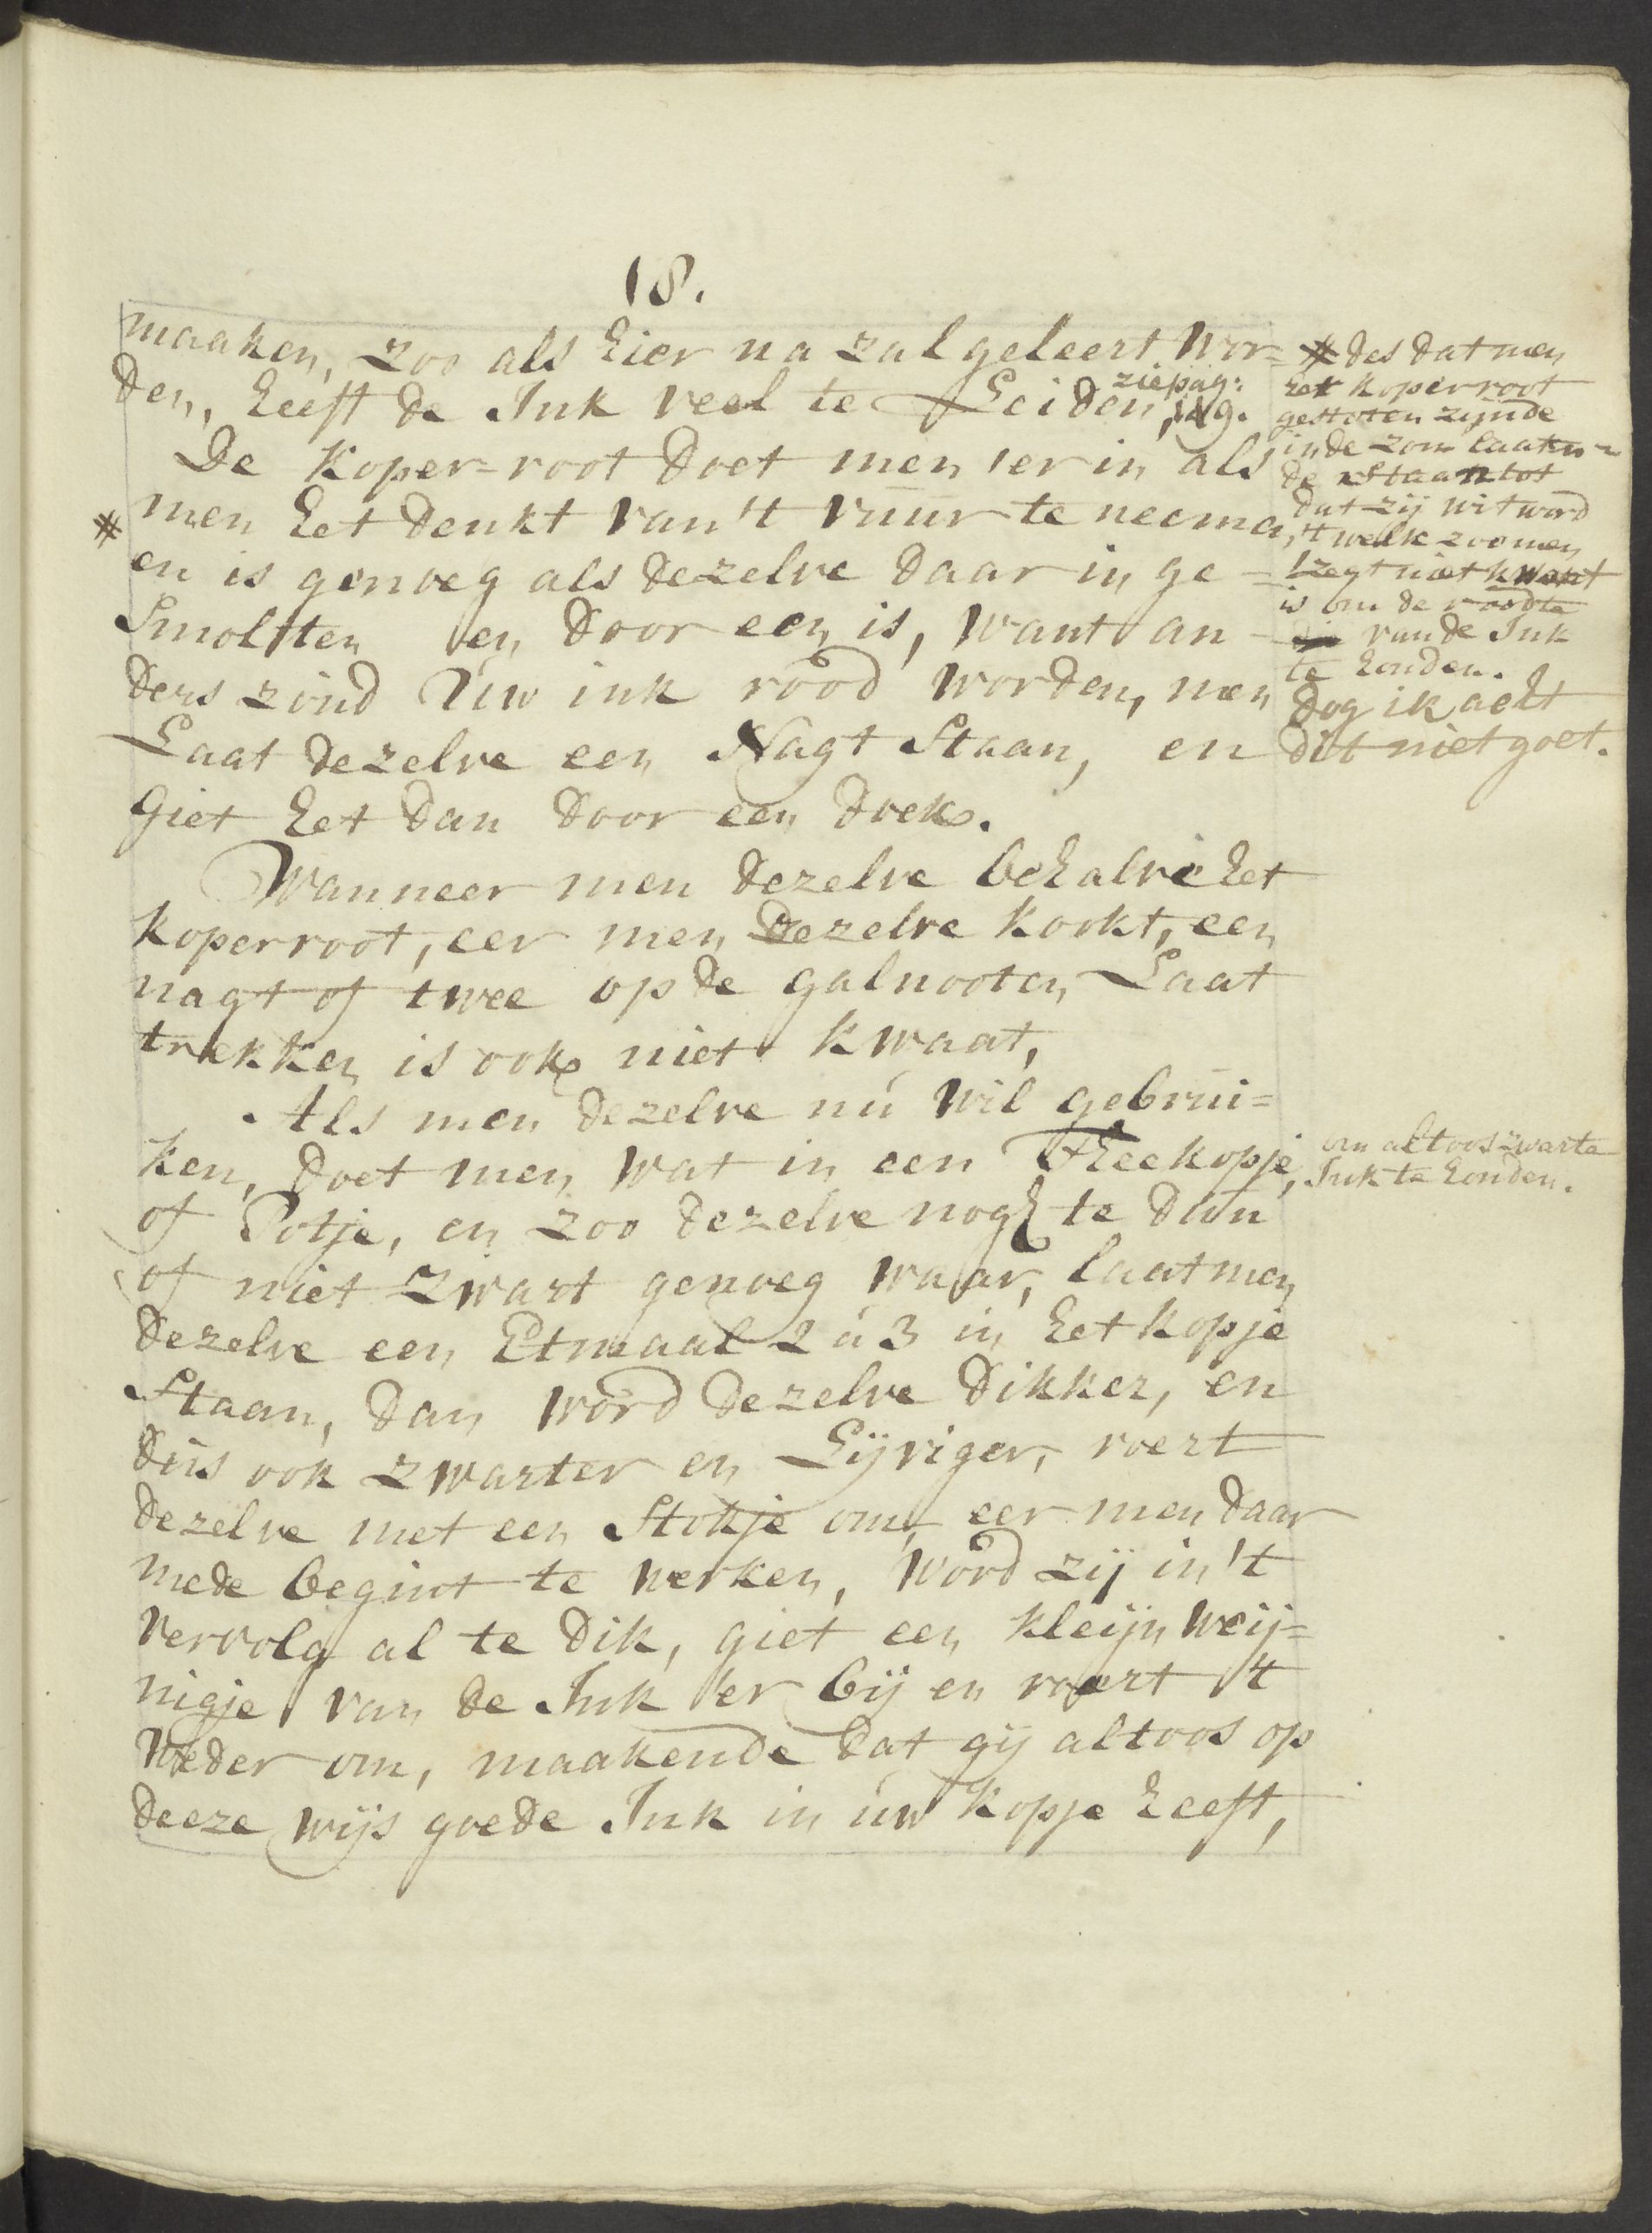 18.
maaken, zoo als hier na zal geleert wor=
den, heeft de Ink veel te Leiden, ziepag: 119.
De Koper=root doet men 'er in als
# men het denkt van 't vuur te neemen,
en is genoeg als dezelve daar in ge=
smolten en door een is, want an=
ders zoud Uw ink rood worden, men
Laat dezelve een Nagt Staan, en
Giet het dan door een doek.
Wanneer men dezelve behalve het
koperroot, eer men dezelve kookt, een
nagt of twee op de galnooten Laat
trekken is ook niet kwaat,
Als men dezelve nu wil gebrui=
ken, doet men wat in een Theekopje,
of Potje, en zoo dezelve nogh te dun
of niet zwart genoeg waar, laat men
dezelve een Etmaal 2 à 3 in het kopje
Staan, dan word dezelve dikker, en
dus ook zwarter en Lijviger, roert
dezelve met een Stokje om, eer men daar
mede begint te werken, word zij in 't
vervolg al te dik, giet een kleijn weij=
nigje van de Ink er bij en roert 't
weder om, maakende dat gij altoos op
deeze wijs goede Ink in uw kopje heeft,
# des dat men
het koperroot
gestoten zijnde
in de zon laaten=
de Staan tot
dat zij wit word
't welk zoo men
zegt niet kwaat
is om de roodte
van de Ink
te houden.
Dog ik acht
dit niet goet.
om altoos zwarte
Ink te houden.